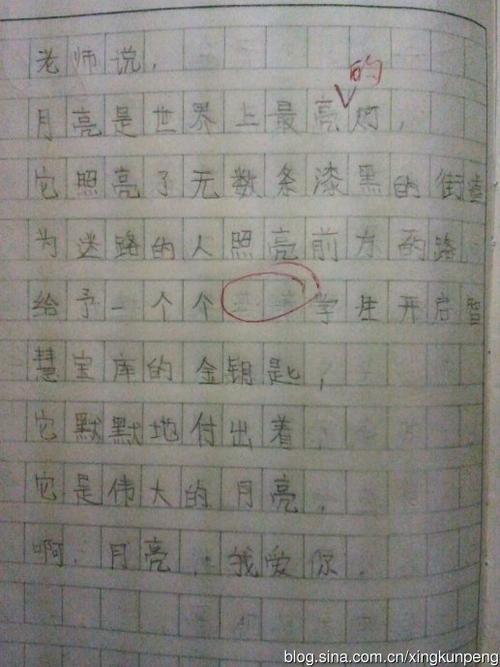 老师说，
月亮是世界上最亮的灯，
它照亮了无数条漆黑的街道
为迷路的人照亮前方的路
给予一个个学生开启智
慧宝库的金钥匙，
它默默地付出着，
它是伟大的月亮，
啊，月亮，我爱你．
blog.sina.com.cn/xingkunpeng